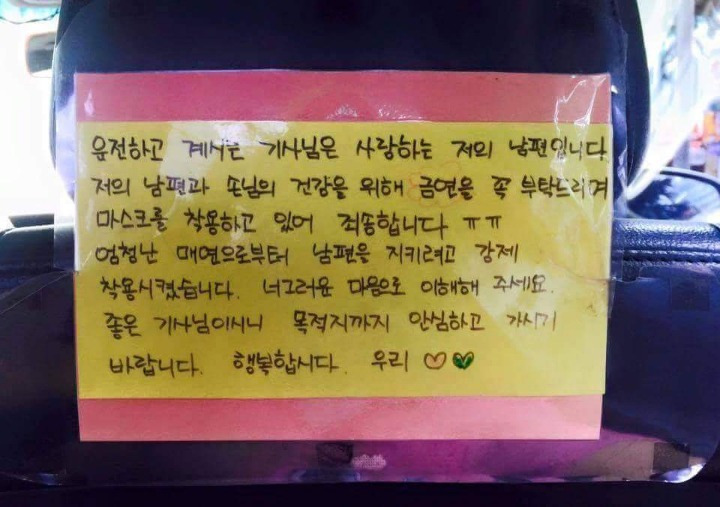 운전하고 계시는 기사님은 사랑하는 저의 남편입니다
저의 남편과 손님의 건강을 위해 금연을 꼭 부탁드리며
마스크를 착용하고 있어 죄송합니다 ㅠㅠ
엄청난 매연으로부터 남편을 지키려고 강제
착용시켰습니다. 너그러운 마음으로 이해해 주세요.
좋은 기사님이시니 목적지까지 안심하고 가시기
바랍니다. 행복합시다. 우리 ♡♥